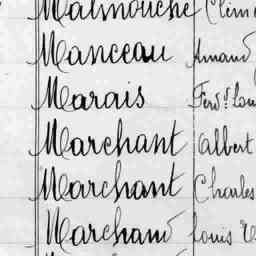 Malmouche Clém
Manceau Amand
Marais Ferd.d Lou
Marchant Albert
Marchant Charles
Marchand Louis